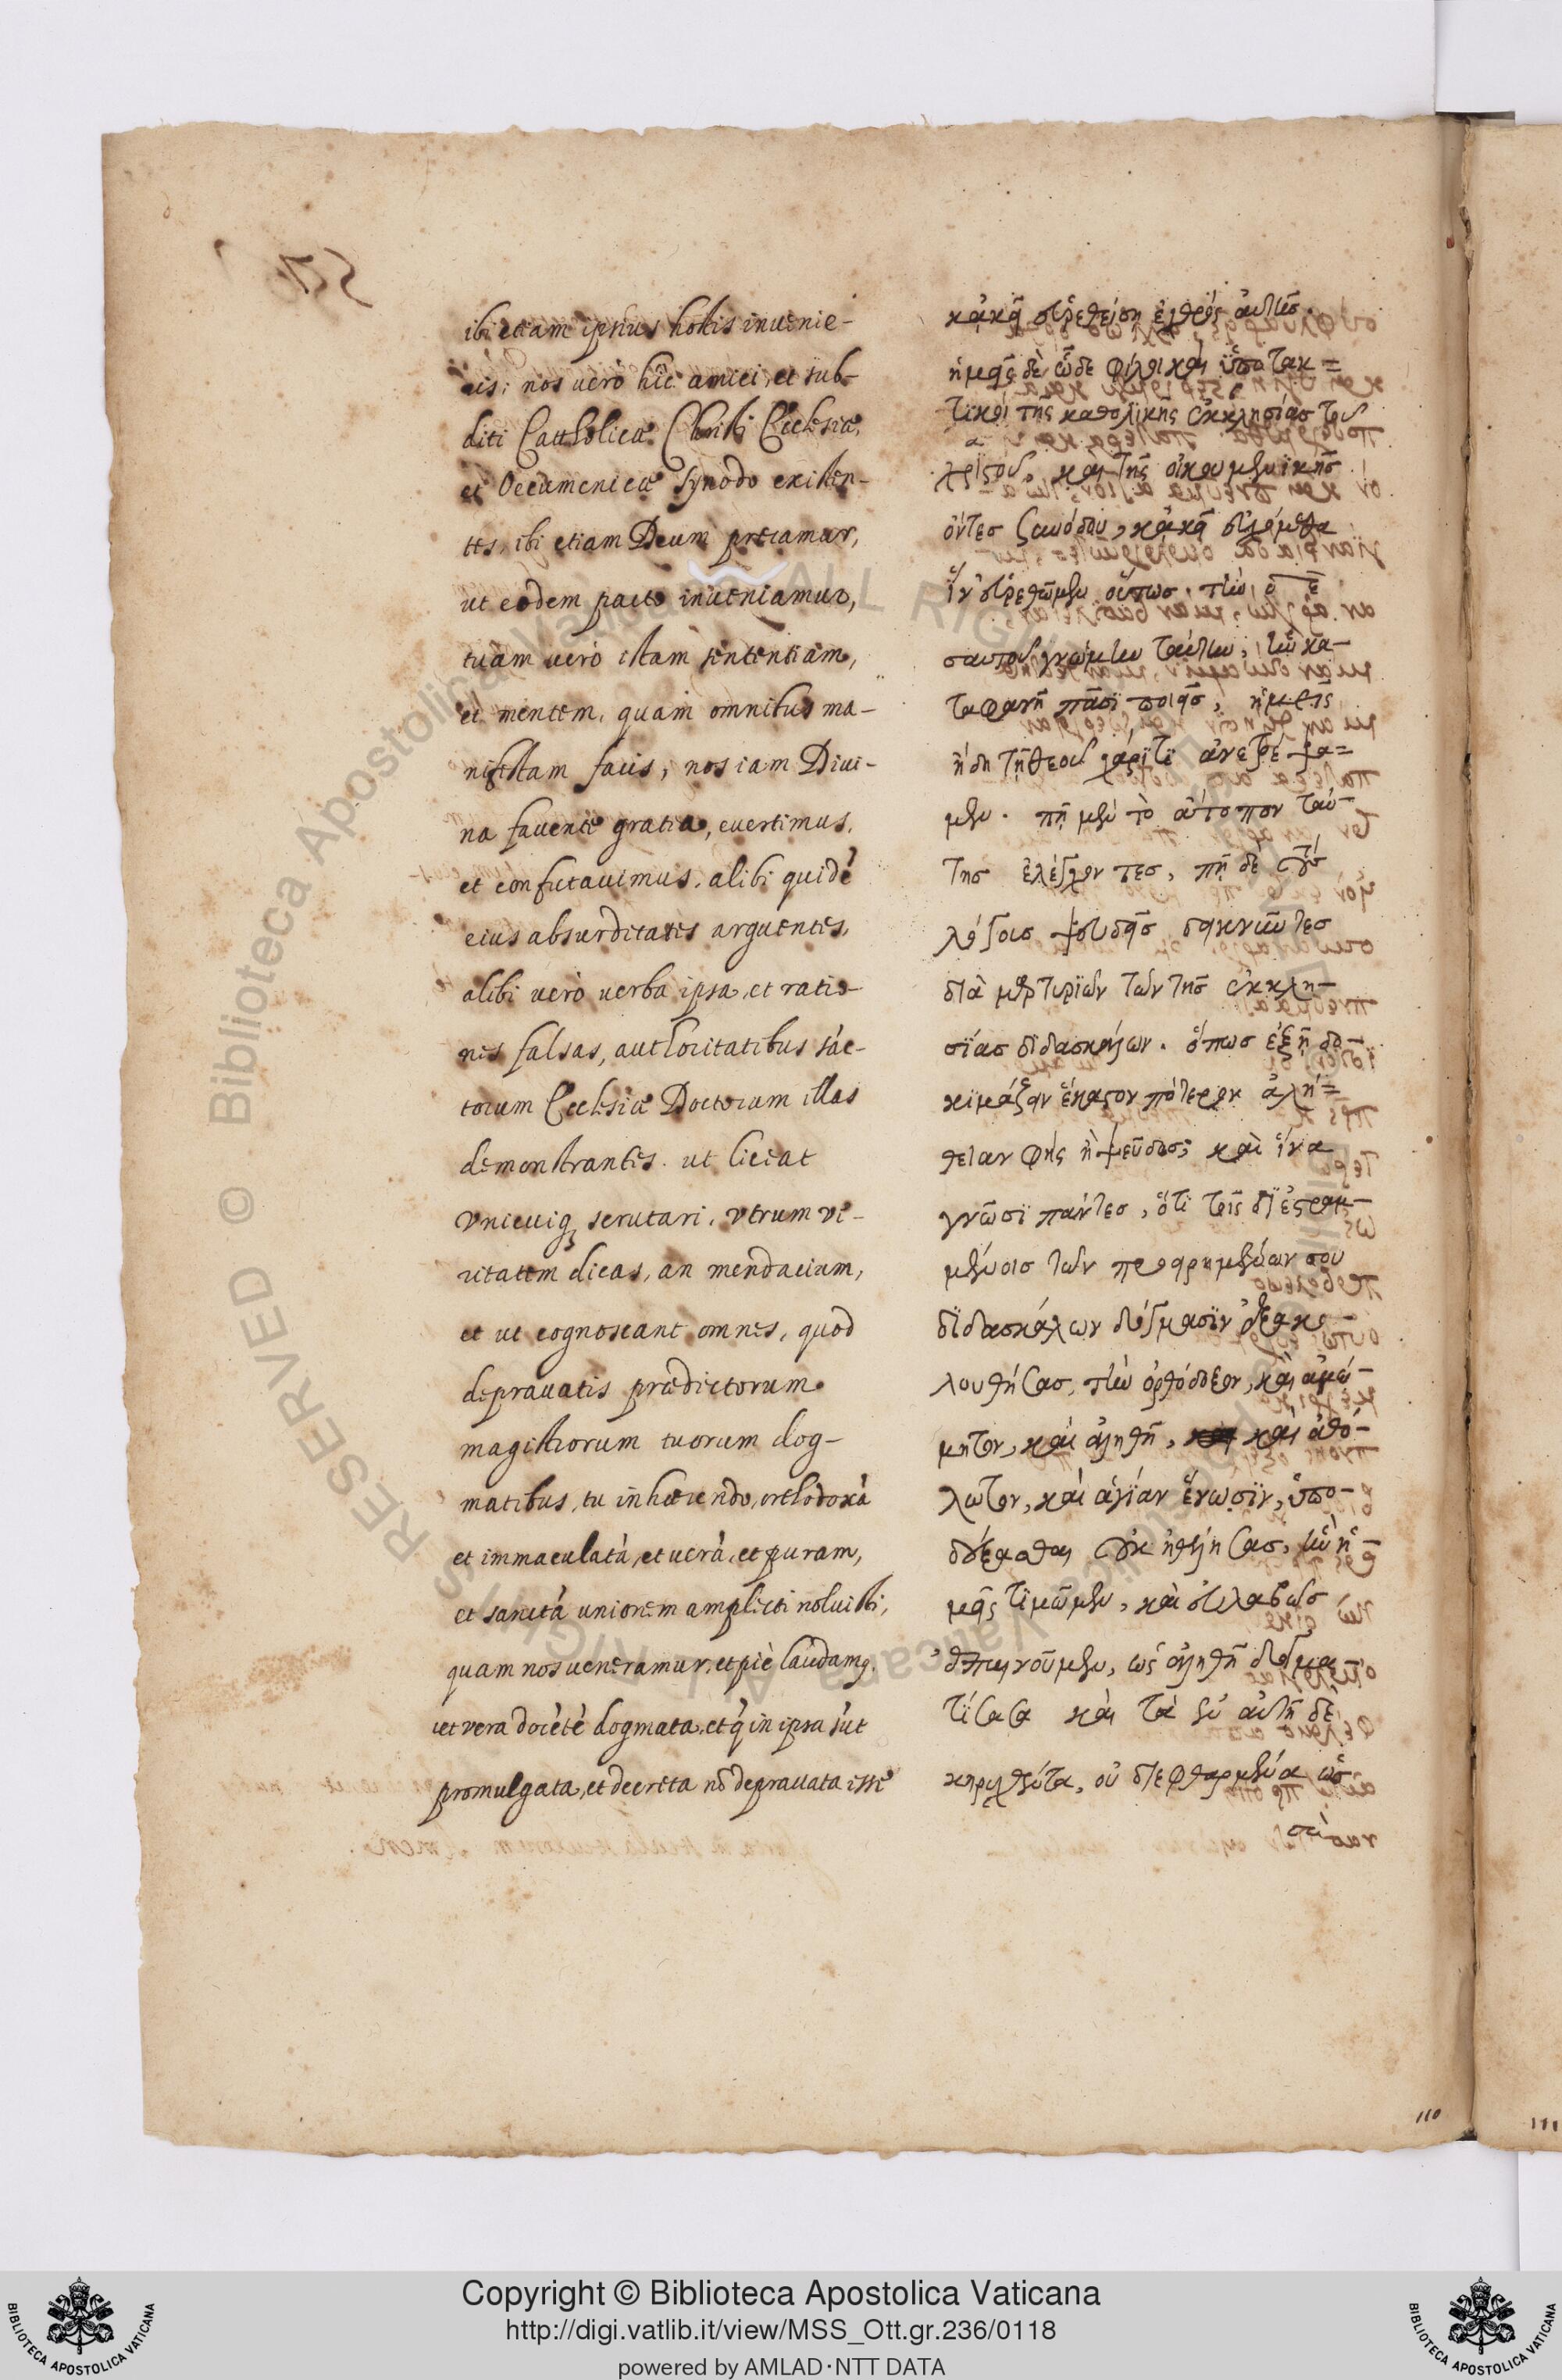 ibi etiam ipsius hostis inuenie-
ris; nos uerò hîc amici, et sub-
diti Catholicæ Christi Ecclesiæ,
et Oecumenicæ Synodo existen-
tes, ibi etiam Deum precamur,
ut eodem pacto inueniamur,
tuam uerò istam sententiam,
et mentem, quam omnibus ma-
nifestam facis, nos iam Diui-
na fauente gratia, euertimus,
et confutauimus, alibi quidẽ
eius absurditates arguentes,
alibi uerò uerba ipsa, et ratio-
nes falsas, authoritatibus sac-
torum Ecclesiæ Doctorum illas
demonstrantes. ut liceat
vnicuiq; scrutari, vtrum ve-
ritatem dicas, an mendacium,
et ut cognoscant omnes, quod
deprauatis prædictorum
magistrorum tuorum dog-
matibus, tu inhærendo, orthodoxã
et immaculatã, et uerã, et puram,
et sanctã unionem amplecti noluisti,
quam nos ueneramur, et piè laudamq,
ut vera docẽtẽ dogmata, et q̃ in ipsa sũt
promulgata, et decreta nõ deprauata esse
κἀκεῖ εὑρεθείση ἐχθρὸς αὐτῆς.
ἡμεῖς δὲ ὧδε φίλοι καὶ ὑποτακ=
τικοὶ τῆς καθολικῆς ἐκκλησίας τοῦ
χριστοῦ, καὶ τῆς οἰκουμενικῆς
ὄντες συνόδου, κἀκεῖ εὐχόμεθα
ἵν' εὑρεθῶμεν οὕτως. τὴν δὲ
σαυτοῦ γνώμην ταύτην, ἣν κα-
ταφανῆ πᾶσι ποιεῖς, ἡμεῖς
ἤδη τῇ θεοῦ χάριτι ἀνετρέψα=
μεν. πῆ μὲν τὸ ἄτοπον ταύ-
της ἐλέγχοντες, πῆ δὲ τοὺς
λόγοις ψευδεῖς δεικνύντες
διὰ μαρτυριῶν τῶν τῆς ἐκκλη-
σίας διδασκάλων. ὅπως ἐξῇ δο-
κιμάζειν ἕκαστον πότερον ἀλή=
θειαν φῂς ἢ ψεῦδος; καὶ ἵνα
γνῶσι πάντες, ὅτι τοῖς διεστραμ-
μένοις τῶν προειρημένων σου
διδασκάλων δόγμασιν ἐξακο-
λουθήσας, τὴν ὀρθόδοξον, καὶ ἀμώ-
μητον, καὶ ἀληθῆ, καὶ ἀθό-
λωτον, καὶ ἁγίαν ἕνωσιν, ὑπο-
δέξασθαι οὐκ ἠθέλησας, ἣν ἡ-
μεῖς τιμῶμεν, καὶ εὐλαβῶς
ἐπαινοῦμεν, ὡς ἀληθῆ δογμα
τίσασα καὶ τὰ ἐν αὐτῇ δὲ
κηρυχθέντα, οὐ διεφθαρμένα ὡς
σὺ
110
111
Copyright © Biblioteca Apostolica Vaticana
http://digi.vatlib.it/view/MSS_Ott.gr.236/0118
powered by AMLAD·NTT DATA